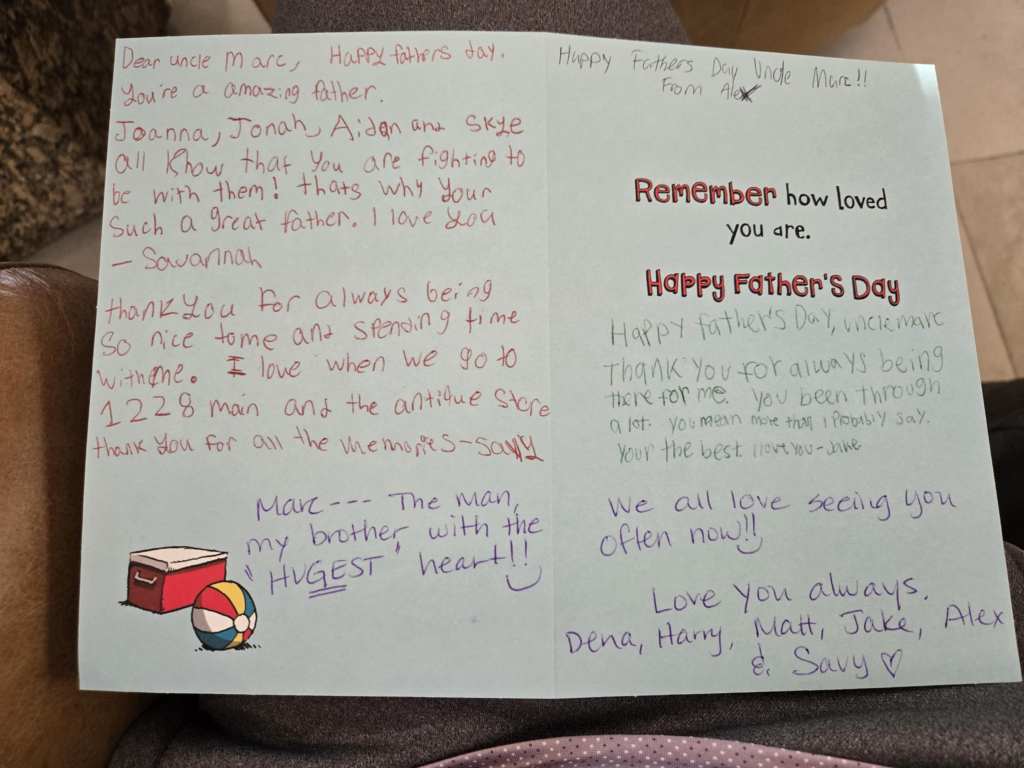 Dear uncle Marc, Happy fathers day.
You're a amazing father.
Joanna, Jonah, Aidan and Skye
all know that you are fighting to
be with them! thats why your
Such a great father. I love you
— Savannah
thank you for always being
So nice to me and spending time
with me. I love when we go to
1228 main and the antique store
thank you for all the memories - Savy
Marc --- The man,
my brother with the
"HUGEST" heart!!
Happy Fathers Day Uncle Marc!!
From Alex
Remember how loved
you are.
Happy Father's Day
Happy father's Day, uncle marc
Thank you for always being
there for me. You been through
a lot. you mean more than i probably say.
Your the best i love you - Jake
We all love seeing you
often now!!
Love you always.
Dena, Harry, Matt, Jake, Alex
& Savy ♡